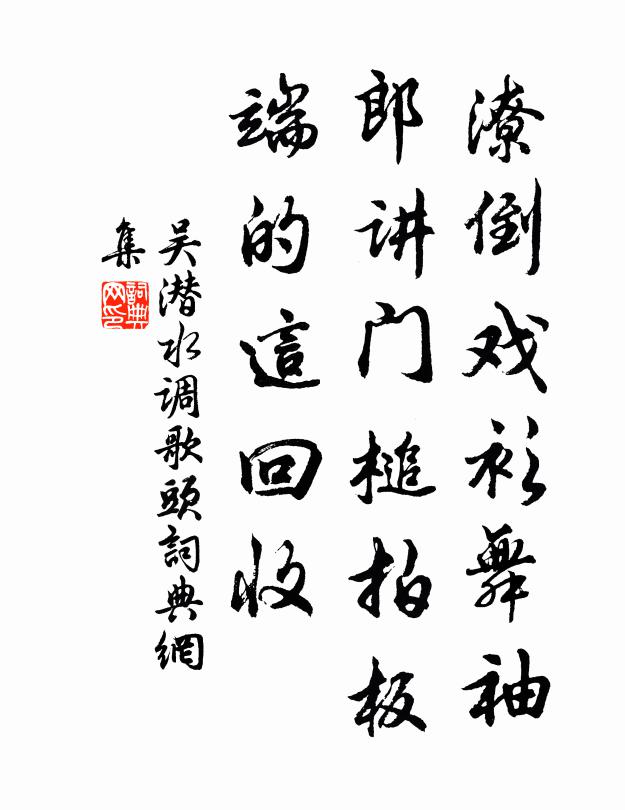 潦倒戏衫舞袖
郎讲门槌拍板
端的這回收
吴潜水调歌頭詞典網
集
詞典
网印